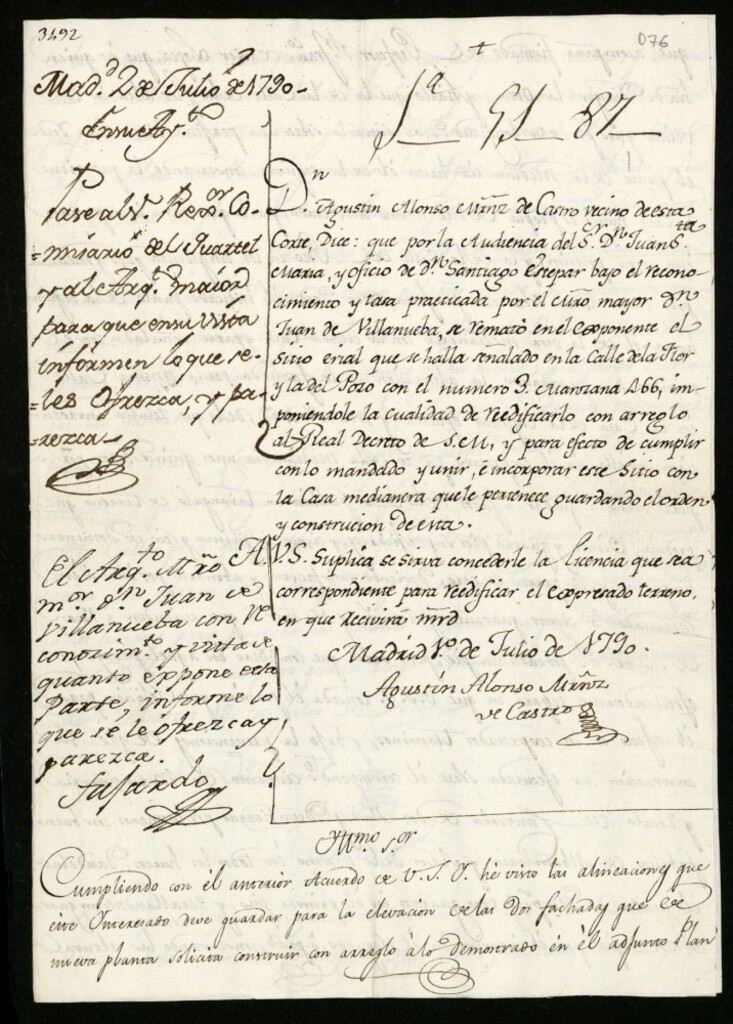 3492
076
+
1ª 51 87
Mad.d 2 de Julio de 1790-
En su Ay.to
Pase al S.r Rex.or Co-
=misario del Quartel
y al Arq.to maior
para que en su vista
informen lo que se-
=les Ofrezca, y pa-
=rezca-
D.n Agustin Alonso Muñz de Castro vecino de esta
Corte, Dice: que por la Audiencia del S.or D.n Juan S.ta
Maria, y oficio de d.n Santiago Estepar bajo el recono-
cimiento y tasa practicada por el Mro mayor d.n
Juan de Villanueba, se remató en el Exponente el
Sitio erial que se halla señalado en la Calle de la Flor
y la del Pozo con el numero 3. Manzana 466, im-
poniendole la cualidad de reedificarlo con arreglo
al Real Decreto de S.M, y para efecto de cumplir
con lo mandado y unir, é incorporar este Sitio con
la Casa medianera que le pertenece guardando el orden
y construcion de esta.
A V.S. Suplica se sirva concederle la licencia que sea
correspondiente para reedificar el Expresado terreno,
en que recivirá mrd
Madrid 1.º de Julio de 1790.
Agustín Alonso Mrñz
de Castro
El Arq.to Mrõ
m.or d.n Juan de
Villanueba con re
conozim.to y vista de
quanto expone esta
Parte, informe lo
que se le ofrezca y
parezca.
Fajardo
Yllmo S.or
Cumpliendo con él anterior Acuerdo de V.S.Y. hé visto las alineaciones que
este Interesado deve guardar para la elevacion de las dos fachadas que de
nueva planta solicita construir con arreglo á lo demostrado én él adjunto Plan